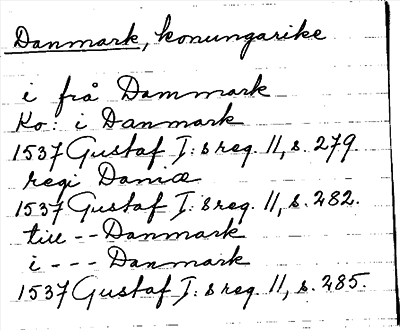 Danmark, konungarike
i frå Dammark
Ko: i Danmark
1537 Gustaf I:s reg. 11, s. 279.
regi Daniæ
1537 Gustaf I:s reg. 11, s. 282.
till -- Danmark
i --- Danmark
1537 Gustaf I:s reg. 11, s. 285.